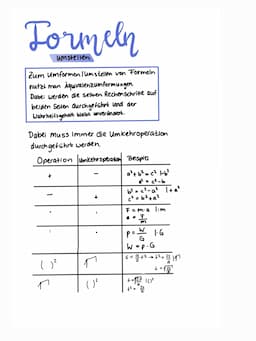 Formeln
umstellen
Zum Umformen/Umstellen von Formeln
nutzt man Äquivalenzumformungen
Dabei werden die selben Rechenschritte auf
beiden Seiten durchgeführt und der
Wahrheitsgehalt bleibt unverändert.
Dabei muss immer die Umkehroperation
durchgeführt werden.
Operation Umkehroperation Beispiel
+ - a² + b² = c² |-b²
a² = c² - b
- + b² = c² - a² | + a²
c² = b² + a²
· : F = m · a |: m
a = F/m
: · p = W/G |· G
W = p · G
( )² √
√ ( )²